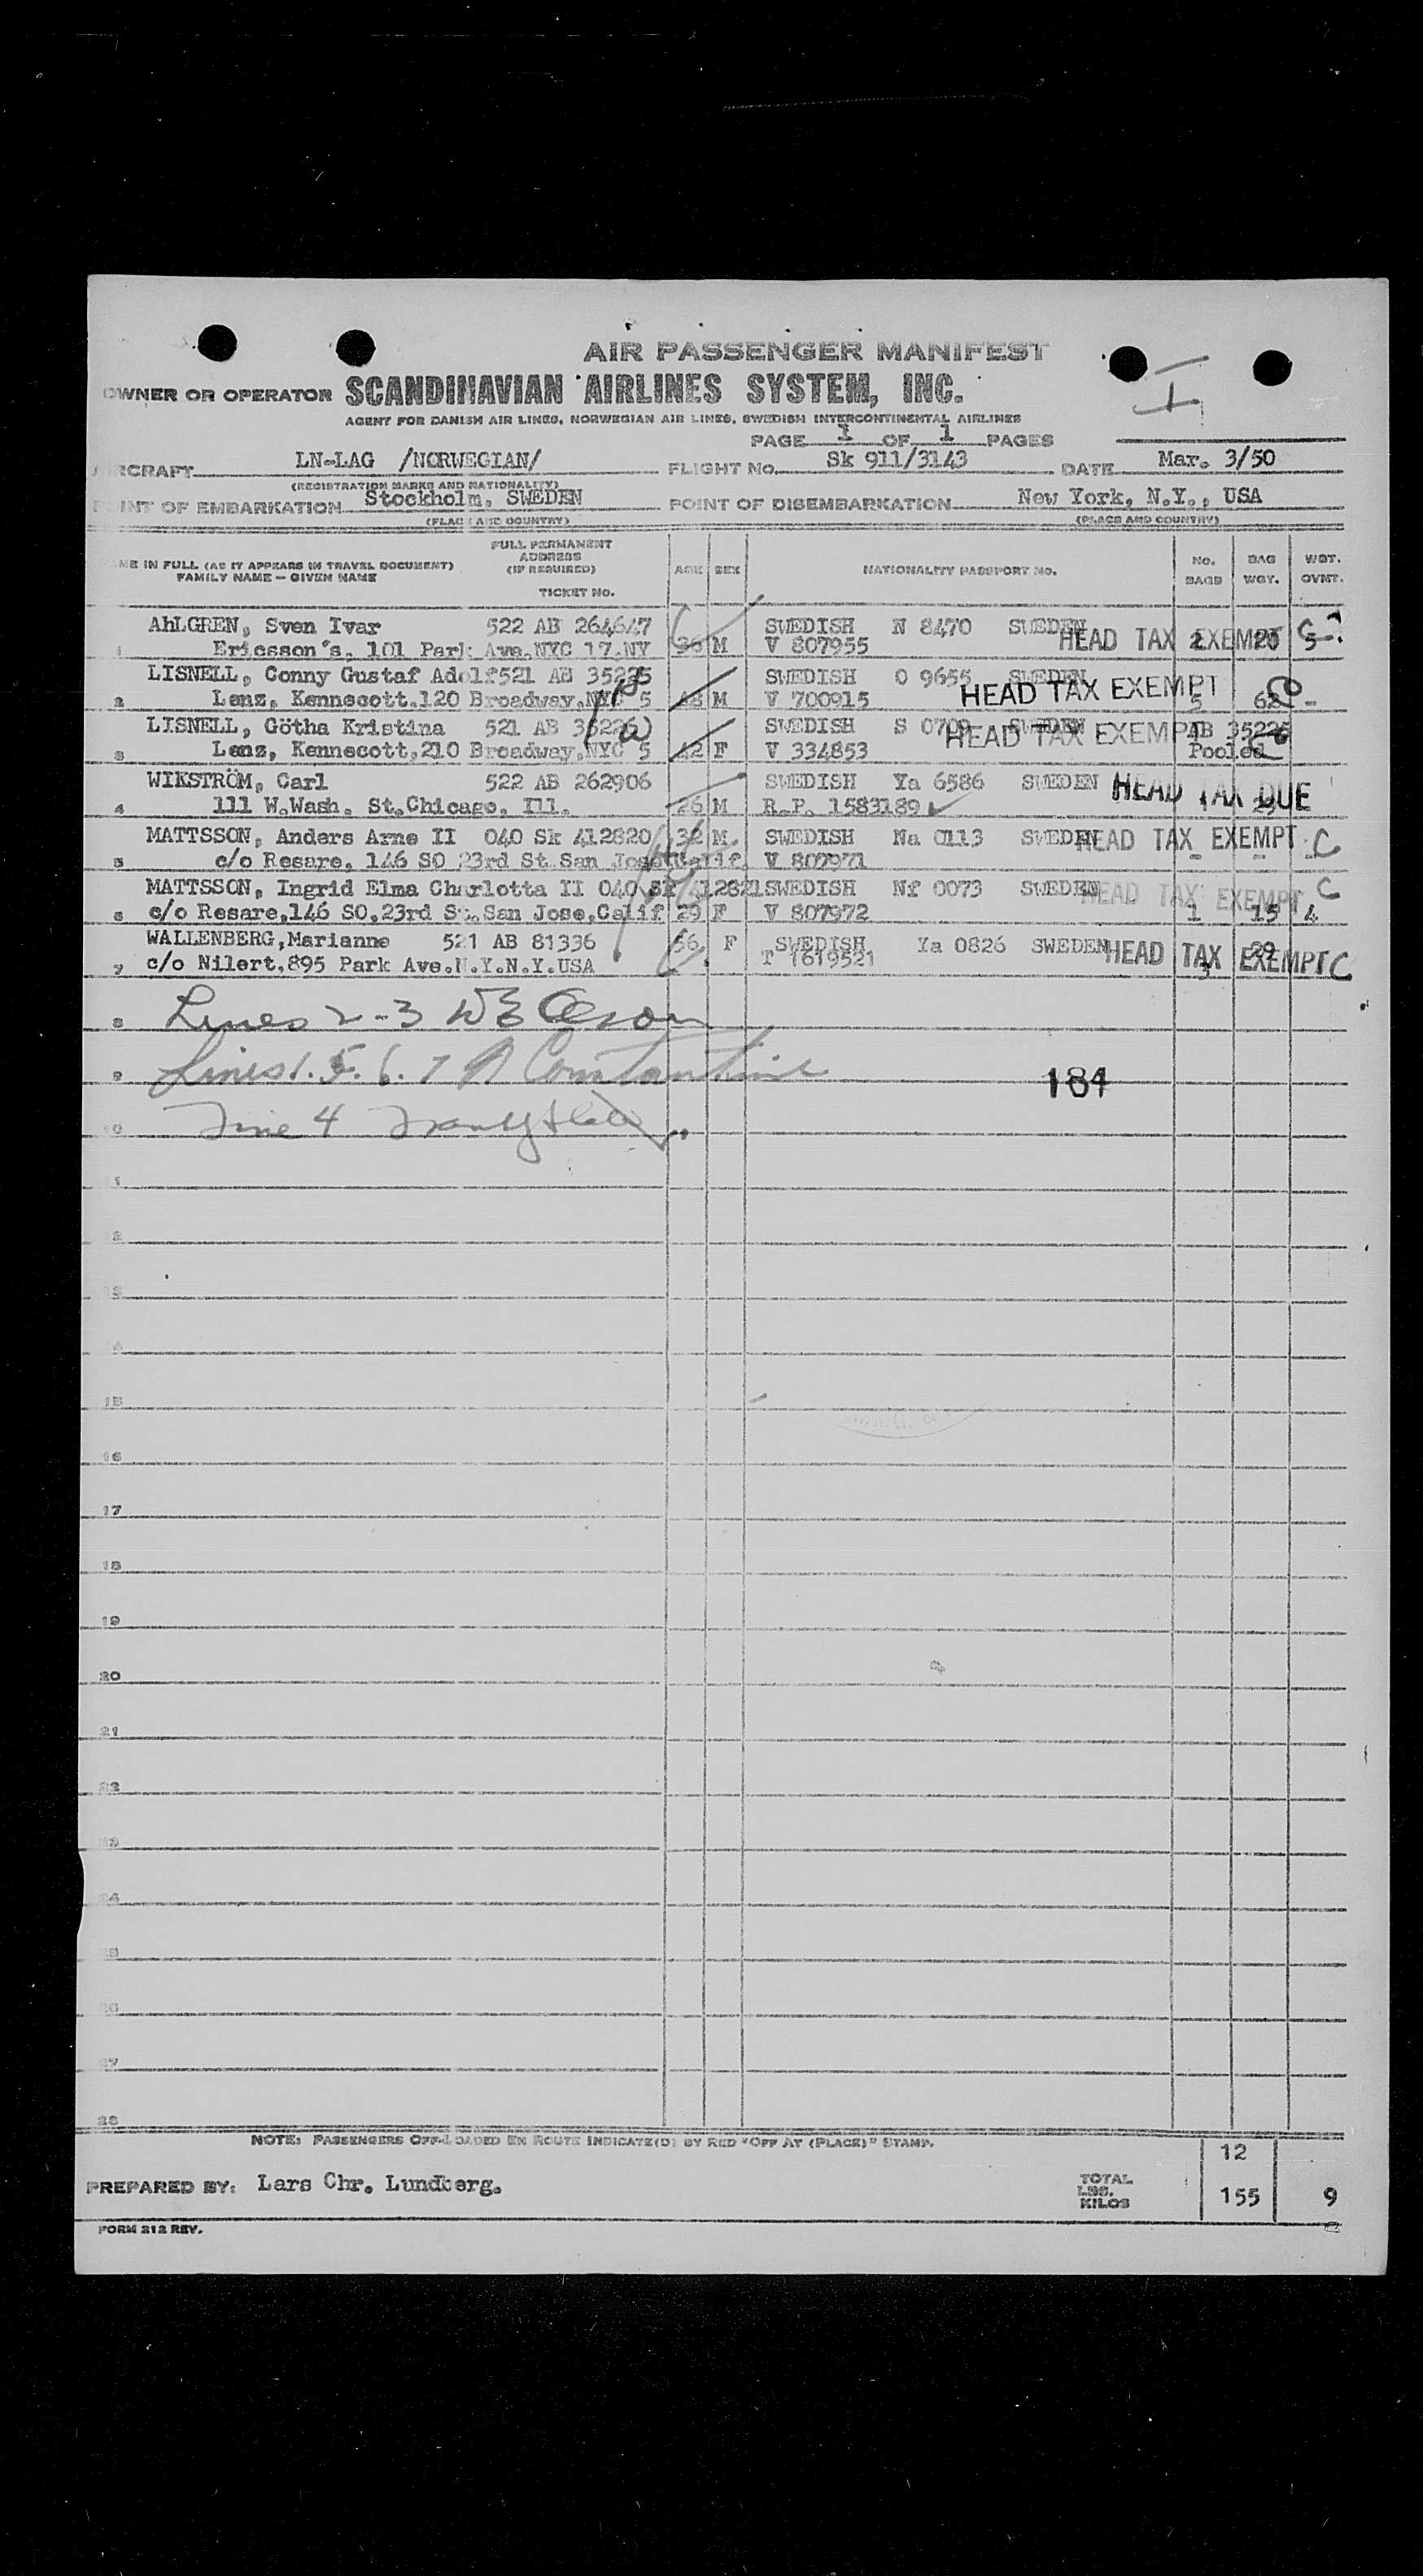 AIR PASSENGER MANIFEST
OWNER OR OPERATOR SCANDINAVIAN AIRLINES SYSTEM, INC.
AGENT FOR DANISH AIR LINES, NORWEGIAN AIR LINES, SWEDISH INTERCONTINENTAL AIRLINES
PAGE 1 OF 1 PAGES
RCRAFT LN-LAG /NORWEGIAN/ FLIGHT No. Sk 911/3143 DATE Mar. 3/50
(REGISTRATION MARKS AND NATIONALITY)
INT OF EMBARKATION Stockholm, SWEDEN POINT OF DISEMBARKATION New York, N.Y., USA
(PLACE AND COUNTRY) (PLACE AND COUNTRY)
ME IN FULL (AS IT APPEARS IN TRAVEL DOCUMENT) FAMILY NAME — GIVEN NAME
FULL PERMANENT ADDRESS (IF REQUIRED)
TICKET NO.
AGE SEX NATIONALITY PASSPORT NO. NO. BAGS BAG WGT. WGT. OVWT.
AhLGREN, Sven Ivar 522 AB 264647 SWEDISH N 8470 SWEDEN
1 Ericsson's, 101 Park Ave.NYC 17.NY 36 M V 807955 HEAD TAX EXEMPT 2 20 5 C
LISNELL, Conny Gustaf Adolf 521 AB 35225 SWEDISH O 9655 SWEDEN
2 Lenz, Kennecott.120 Broadway.NYC 5 M V 700915 HEAD TAX EXEMPT 5 62 -
LISNELL, Götha Kristina 521 AB 35226 SWEDISH S 0709 SWEDEN HEAD TAX EXEMPT AB 35225
3 Lenz, Kennecott,210 Broadway.NYC 5 42 F V 334853 Pooled
WIKSTRÖM, Carl 522 AB 262906 SWEDISH Ya 6586 SWEDEN HEAD TAX DUE
4 111 W.Wash. St.Chicago. Ill. 26 M R.P. 1583189
MATTSSON, Anders Arne II 040 Sk 412820 32 M SWEDISH Na 0113 SWEDEN HEAD TAX EXEMPT C
5 c/o Resare, 146 SO 23rd St San Jose Calif. V 807971 - - -
MATTSSON, Ingrid Elma Charlotta II 040 Sk 412821 SWEDISH Nf 0073 SWEDEN HEAD TAX EXEMPT C
6 c/o Resare,146 SO,23rd St.,San Jose,Calif 29 F V 807972 1 15 4
WALLENBERG,Marianne 521 AB 81336 56 F SWEDISH Ya 0826 SWEDEN HEAD TAX EXEMPT C
7 c/o Nilert.895 Park Ave.N.Y.N.Y.USA T 1619521 3 29
8 Lines 2-3
9 Lines 1. 5. 6. 7 Constantine
184
10 Line 4
15
16
17
18
19
20
21
22
23
24
25
26
27
28
NOTE: PASSENGERS OFF-LOADED EN ROUTE INDICATE(D) BY RED "OFF AT (PLACE)" STAMP.
12
PREPARED BY: Lars Chr. Lundberg. TOTAL LBS. KILOS 155 9
FORM 212 REV.